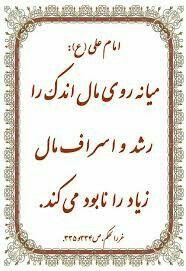 امام علی (ع):
میانه روی مال اندک را
رشد و اسراف مال
زیاد را نابود می کند.
غررالحکم، ص ۳۳۴ و ۳۳۵